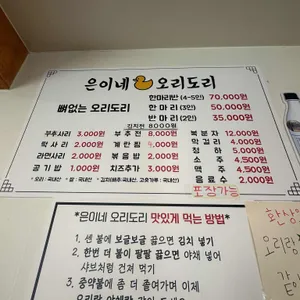 은이네 오리도리
뼈없는 오리도리
한마리반 (4~5인) 70,000원
한 마 리 (3인) 50,000원
반 마 리 (2인) 35,000원
김치전 8000원
부추사리 3,000원 부 추 전 8,000원 복 분 자 12,000원
떡 사 리 2,000원 계 란 찜 4,000원 막 걸 리 4,000원
라면사리 2,000원 볶 음 밥 2,000원 청 하 5,000원
공 기 밥 1,000원 치즈추가 3,000원 소 주 4,500원
맥 주 4,500원
음 료 수 2,000원
* 오리 : 국내산 * 쌀 : 국내산 * 김치(배추:국내산, 고춧가루:국내산)
포장가능
*은이네 오리도리 맛있게 먹는 방법*
1. 센 불에 보글보글 끓으면 김치 넣기
2. 한번 더 불이 팔팔 끓으면 야채 넣어
샤브처럼 건져 먹기
3. 중약불에 좀 더 쫄여가며 이제